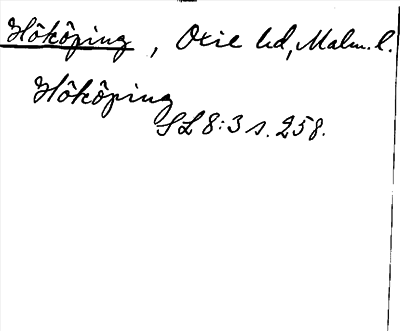 Hököping, Oxie hd, Malm. l.
Hököping
SL 8:3 s. 258.